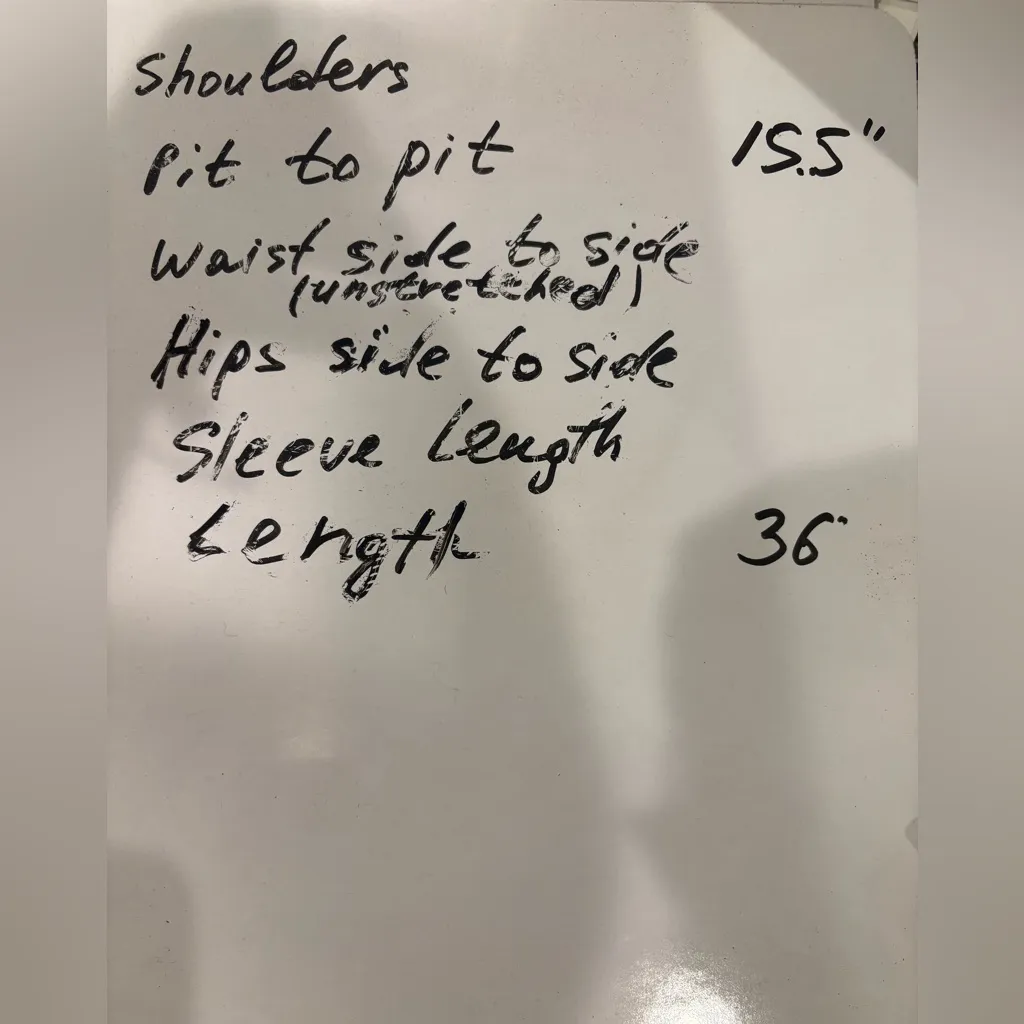 Shoulders
Pit to pit 15.5"
Waist side to side
(unstretched)
Hips side to side
Sleeve Length
Length 36"